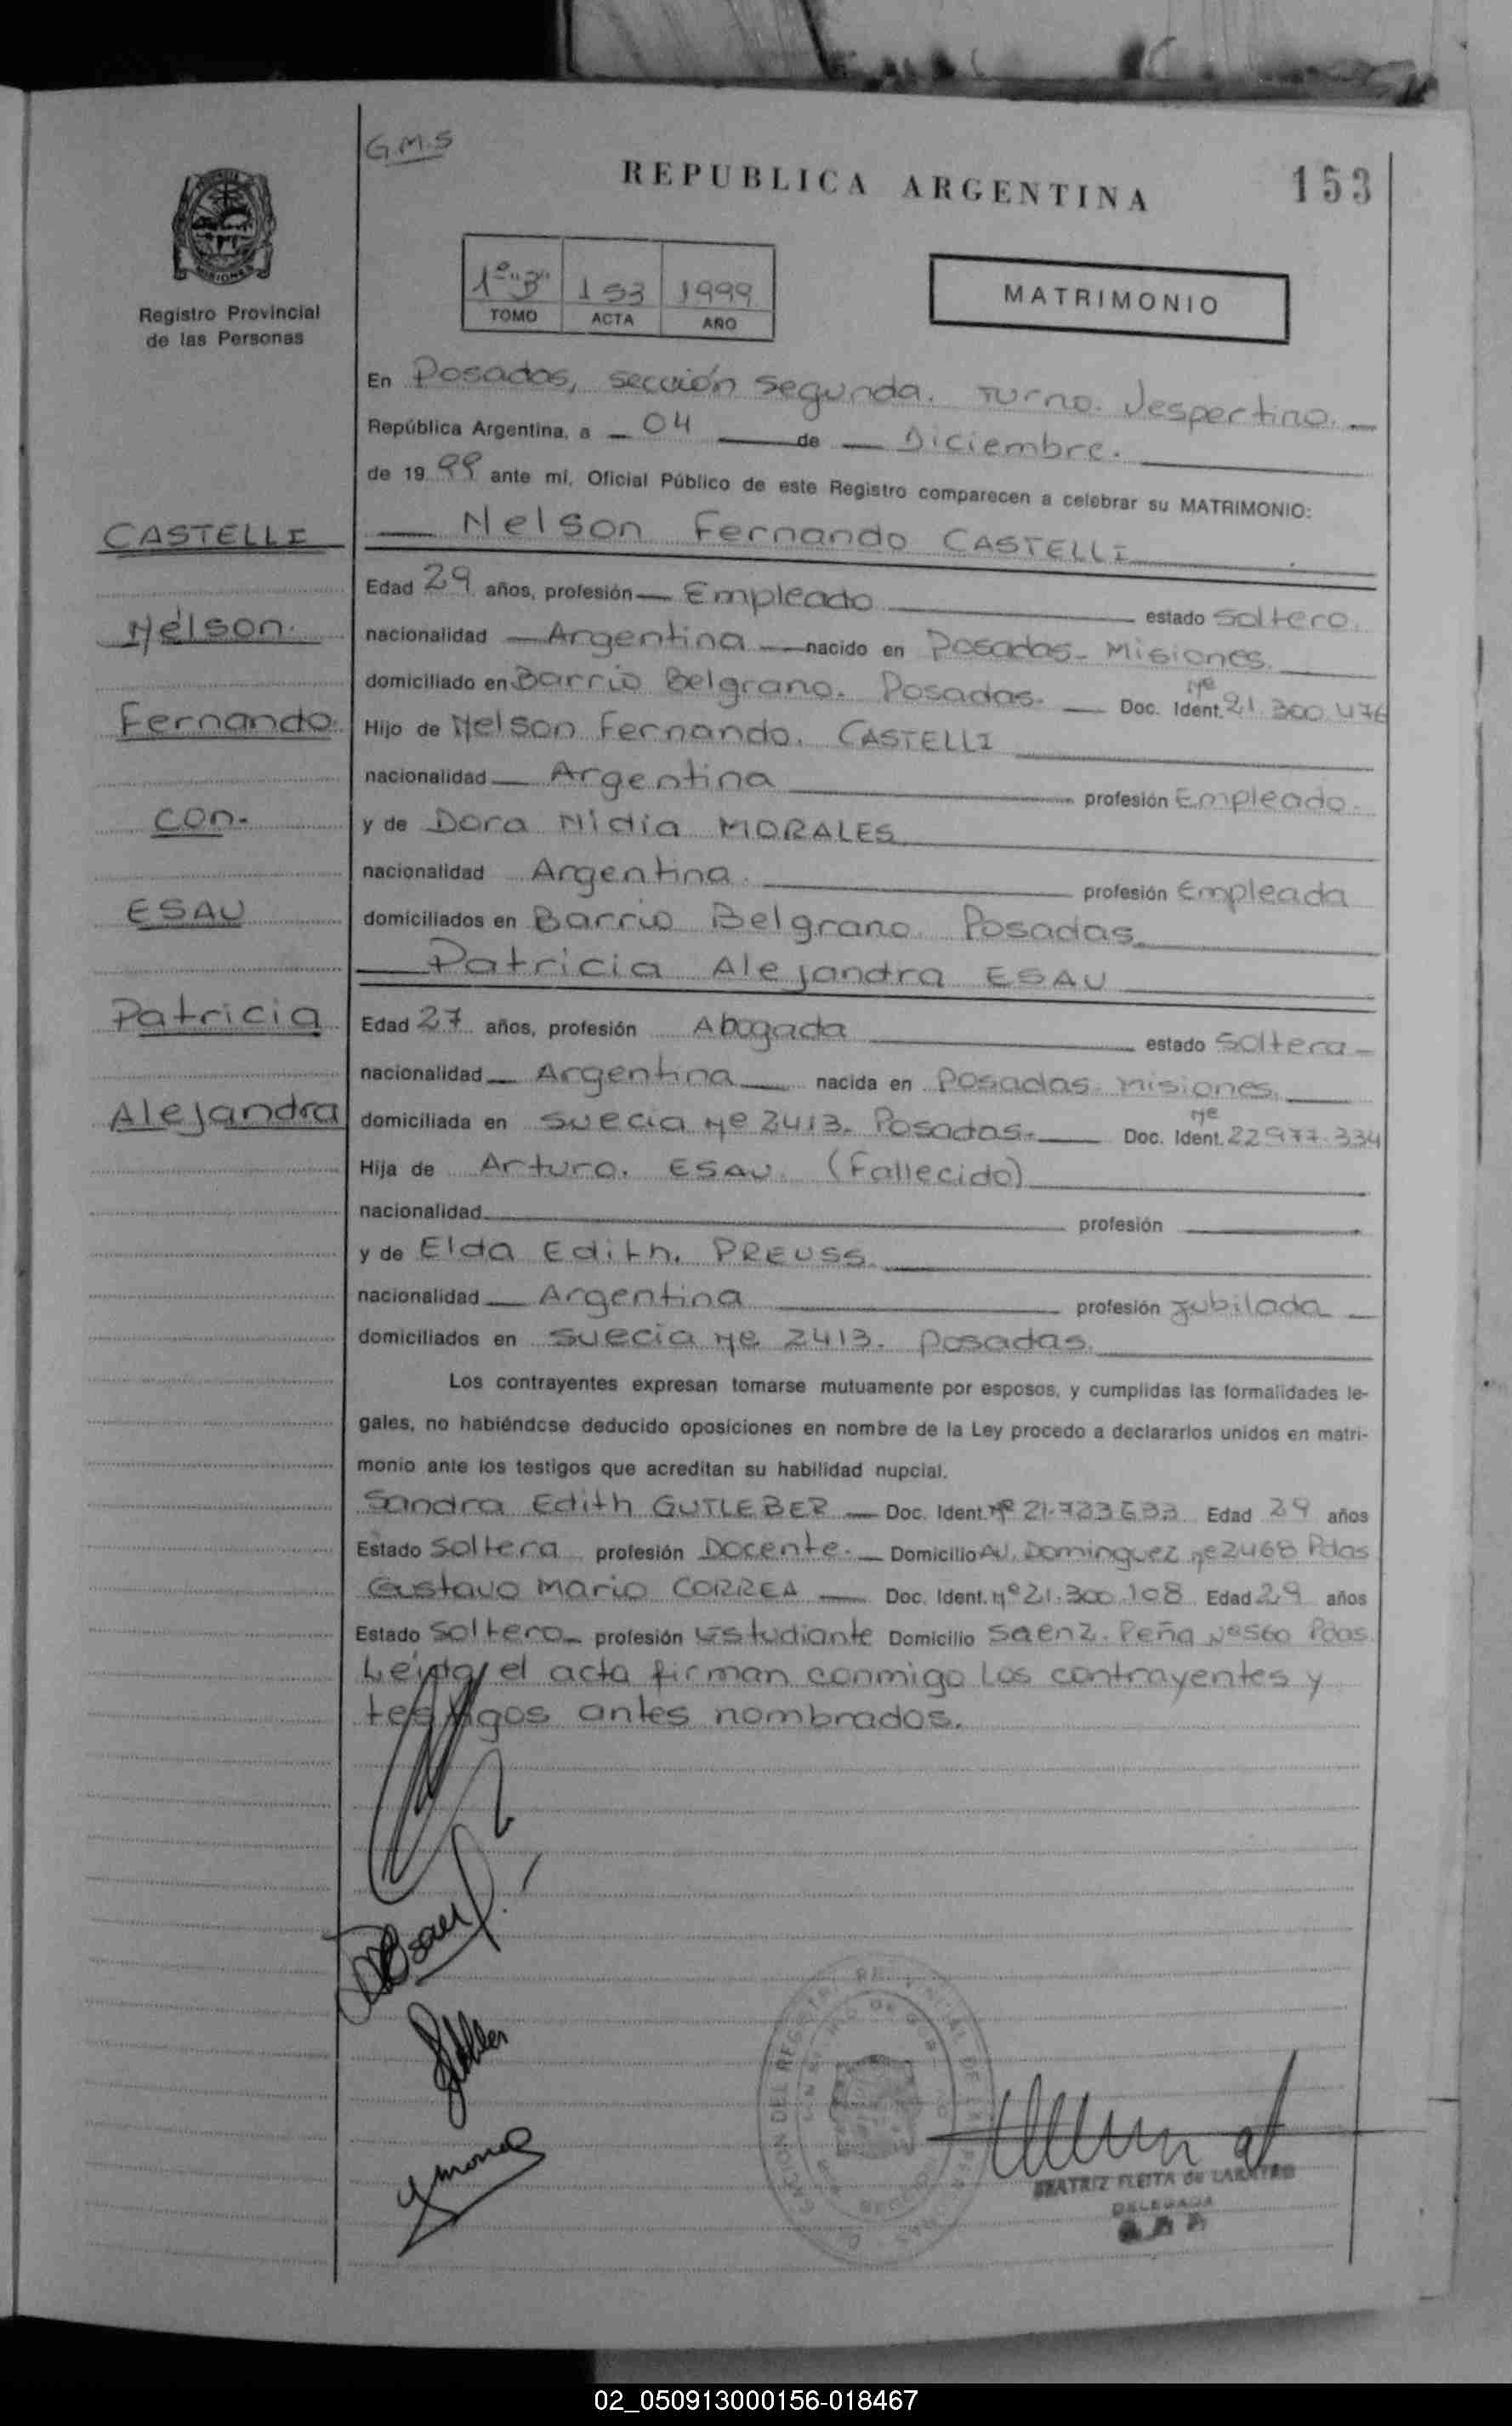 G.M.S
REPUBLICA ARGENTINA
153
MISIONES
Registro Provincial
de las Personas
1º "B" 153 1999
TOMO ACTA AÑO
MATRIMONIO
En Posadas, sección segunda. Turno. Vespertino.
República Argentina, a 04 de Diciembre.
de 1999 ante mí, Oficial Público de este Registro comparecen a celebrar su MATRIMONIO:
CASTELLI
Nelson Fernando CASTELLI
Edad 29 años, profesión Empleado estado soltero.
Nelson.
nacionalidad Argentina nacido en Posadas- Misiones.
domiciliado en Barrio Belgrano. Posadas. Doc. Ident. Nº 21.300.476
Fernando.
Hijo de Nelson Fernando. CASTELLI
nacionalidad Argentina profesión Empleado.
con.
y de Dora Nidia MORALES
nacionalidad Argentina. profesión Empleada
ESAU
domiciliados en Barrio Belgrano Posadas
Patricia Alejandra ESAU
Patricia
Edad 27 años, profesión Abogada estado soltera-
nacionalidad Argentina nacida en Posadas- Misiones.
Alejandra
domiciliada en Suecia Nº 2413. Posadas. Doc. Ident. Nº 22.977.334
Hija de Arturo. ESAU. (Fallecido)
nacionalidad profesión
y de Elda Edith. PREUSS
nacionalidad Argentina profesión Jubilada
domiciliados en Suecia Nº 2413. Posadas.
Los contrayentes expresan tomarse mutuamente por esposos, y cumplidas las formalidades le-
gales, no habiéndose deducido oposiciones en nombre de la Ley procedo a declararlos unidos en matri-
monio ante los testigos que acreditan su habilidad nupcial.
Sandra Edith GUTLEBER Doc. Ident. Nº Edad 29 años
Estado soltera profesión Docente. Domicilio AV. Dominguez Nº 2468 Pdas
Gustavo Mario CORREA Doc. Ident. Nº 21.300.108 Edad 29 años
Estado soltero profesión Estudiante Domicilio Saenz. Peña Nº 560 Pdas.
Leída el acta firman conmigo los contrayentes y
testigos antes nombrados.
BEATRIZ FLEITA de
DELEGADA
02_050913000156-018467